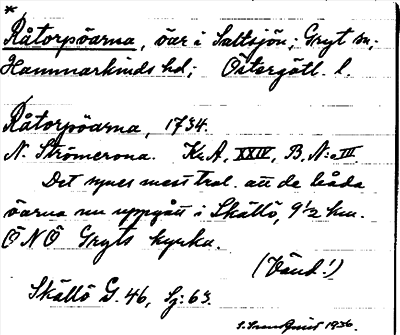 *
Råtorpöarna, öar i Saltsjön, Gryt sn;
Hammarkinds hd; Östergötl. l.
Råtorpöarna, 1734.
N. Strömcrona. Kr. A, XXIV, B, N:o III
Det synes mest trol. att de båda
öarna nu uppgått i Skällö, 9½ km.
ÖNÖ Gryts kyrka.
(Vänd!)
Skällö G. 46, Sj: 63.
1936.